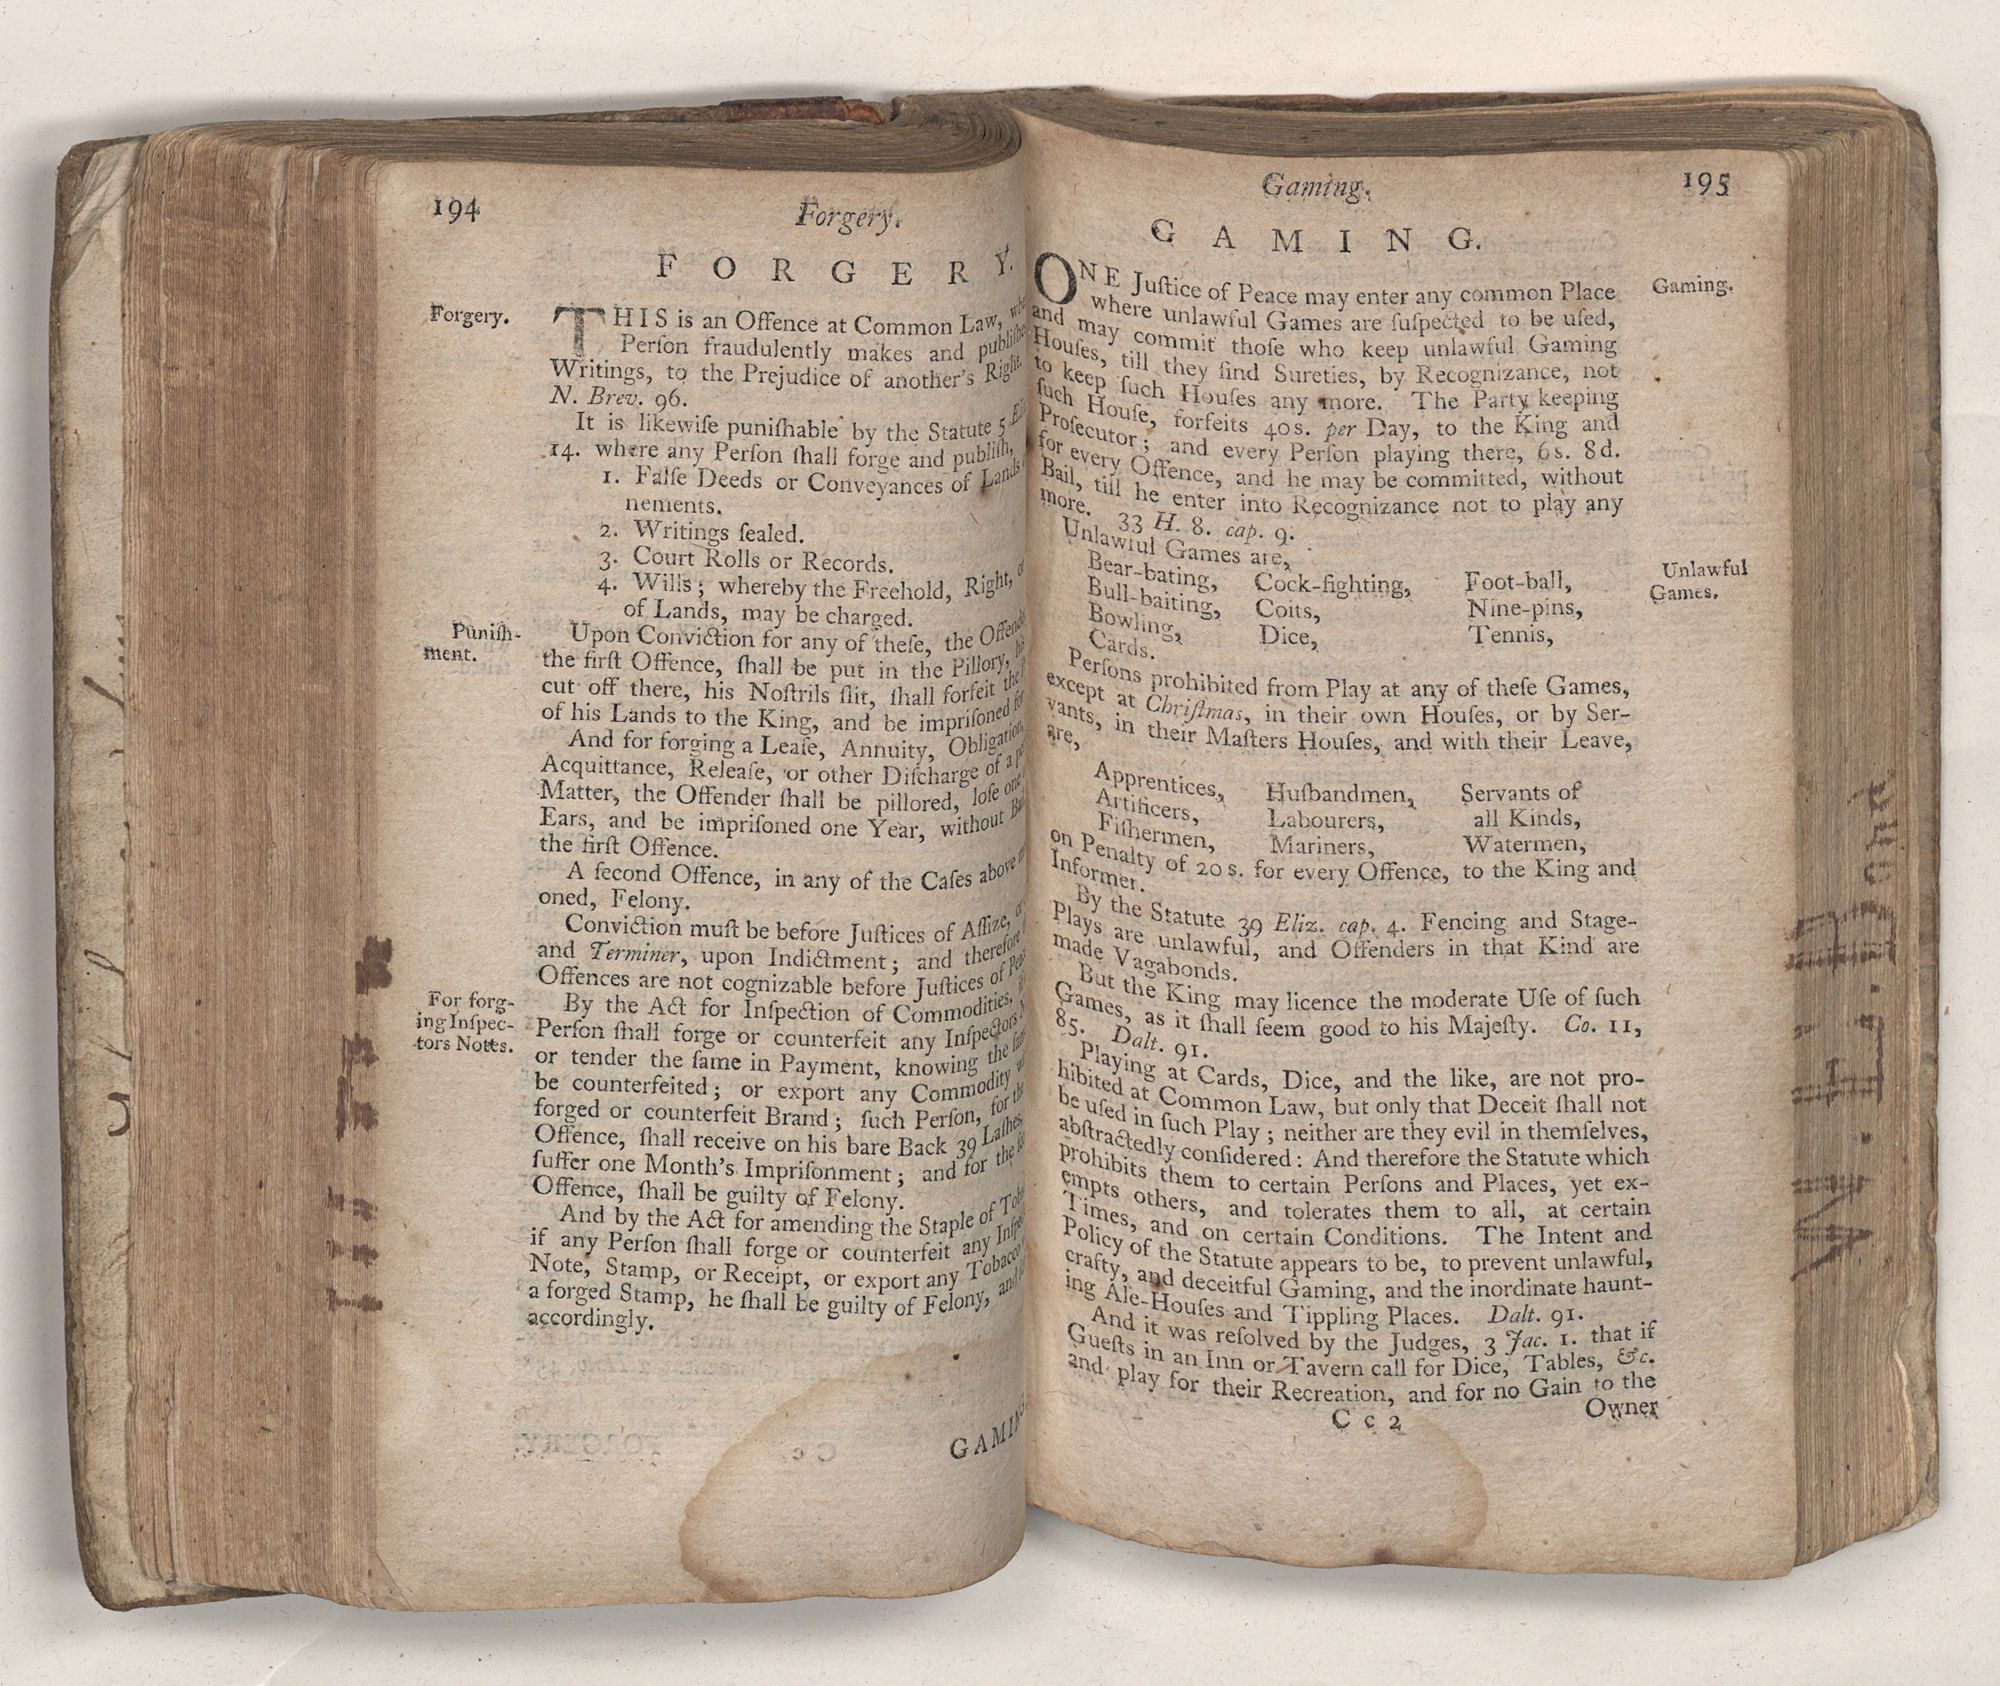 194
Forgery.
FORGERY.
Forgery.
THIS is an Offence at Common Law,
Perſon fraudulently makes and
Writings, to the Prejudice of another's Right.
N. Brev. 96.
It is likewiſe puniſhable by the Statute 5
14. where any Perſon ſhall forge and publiſh,
1. Falſe Deeds or Conveyances of Lands
nements.
2. Writings ſealed.
3. Court Rolls or Records.
4. Wills; whereby the Freehold, Right,
of Lands, may be charged.
Puniſh-
ment.
Upon Conviction for any of theſe, the
the firſt Offence, ſhall be put in the Pillory,
cut off there, his Noſtrils ſlit, ſhall forfeit the
of his Lands to the King, and be impriſoned for
And for forging a Leaſe, Annuity,
Acquittance, Releaſe, or other Diſcharge of a
Matter, the Offender ſhall be pillored, loſe one
Ears, and be impriſoned one Year, without
the firſt Offence.
A ſecond Offence, in any of the Caſes above
oned, Felony.
Conviction muſt be before Juſtices of Aſſize,
and Terminer, upon Indictment; and therefore
Offences are not cognizable before Juſtices of
For forg-
ing Inſpec-
tors Notes.
By the Act for Inſpection of Commodities,
Perſon ſhall forge or counterfeit any Inſpectors
or tender the ſame in Payment, knowing the
be counterfeited; or export any Commodity
forged or counterfeit Brand; ſuch Perſon, for the
Offence, ſhall receive on his bare Back 39 Laſhes,
ſuffer one Month's Impriſonment; and for the
Offence, ſhall be guilty of Felony.
And by the Act for amending the Staple of
if any Perſon ſhall forge or counterfeit any
Note, Stamp, or Receipt, or export any Tobacco
a forged Stamp, he ſhall be guilty of Felony, and
accordingly.
GAMING
Gaming.
195
GAMING.
Gaming.
ONE Juſtice of Peace may enter any common Place
where unlawful Games are ſuſpected to be uſed,
and may commit thoſe who keep unlawful Gaming
Houſes, till they find Sureties, by Recognizance, not
to keep ſuch Houſes any more. The Party keeping
ſuch Houſe, forfeits 40s. per Day, to the King and
Proſecutor; and every Perſon playing there, 6s. 8d.
for every Offence, and he may be committed, without
Bail, till he enter into Recognizance not to play any
more. 33 H. 8. cap. 9.
Unlawful
Games.
Unlawful Games are,
Bear-bating, Cock-fighting, Foot-ball,
Bull-baiting, Coits, Nine-pins,
Bowling, Dice, Tennis,
Cards.
Perſons prohibited from Play at any of theſe Games,
except at Chriſtmas, in their own Houſes, or by Ser-
vants, in their Maſters Houſes, and with their Leave,
are,
Apprentices, Huſbandmen, Servants of
Artificers, Labourers, all Kinds,
Fiſhermen, Mariners, Watermen,
on Penalty of 20s. for every Offence, to the King and
Informer.
By the Statute 39 Eliz. cap. 4. Fencing and Stage-
Plays are unlawful, and Offenders in that Kind are
made Vagabonds.
But the King may licence the moderate Uſe of ſuch
Games, as it ſhall ſeem good to his Majeſty. Co. 11,
85. Dalt. 91.
Playing at Cards, Dice, and the like, are not pro-
hibited at Common Law, but only that Deceit ſhall not
be uſed in ſuch Play; neither are they evil in themſelves,
abſtractedly conſidered: And therefore the Statute which
prohibits them to certain Perſons and Places, yet ex-
empts others, and tolerates them to all, at certain
Times, and on certain Conditions. The Intent and
Policy of the Statute appears to be, to prevent unlawful,
crafty, and deceitful Gaming, and the inordinate haunt-
ing Ale-Houſes and Tippling Places. Dalt. 91.
And it was reſolved by the Judges, 3 Jac. 1. that if
Gueſts in an Inn or Tavern call for Dice, Tables, &c.
and play for their Recreation, and for no Gain to the
Cc2
Owner